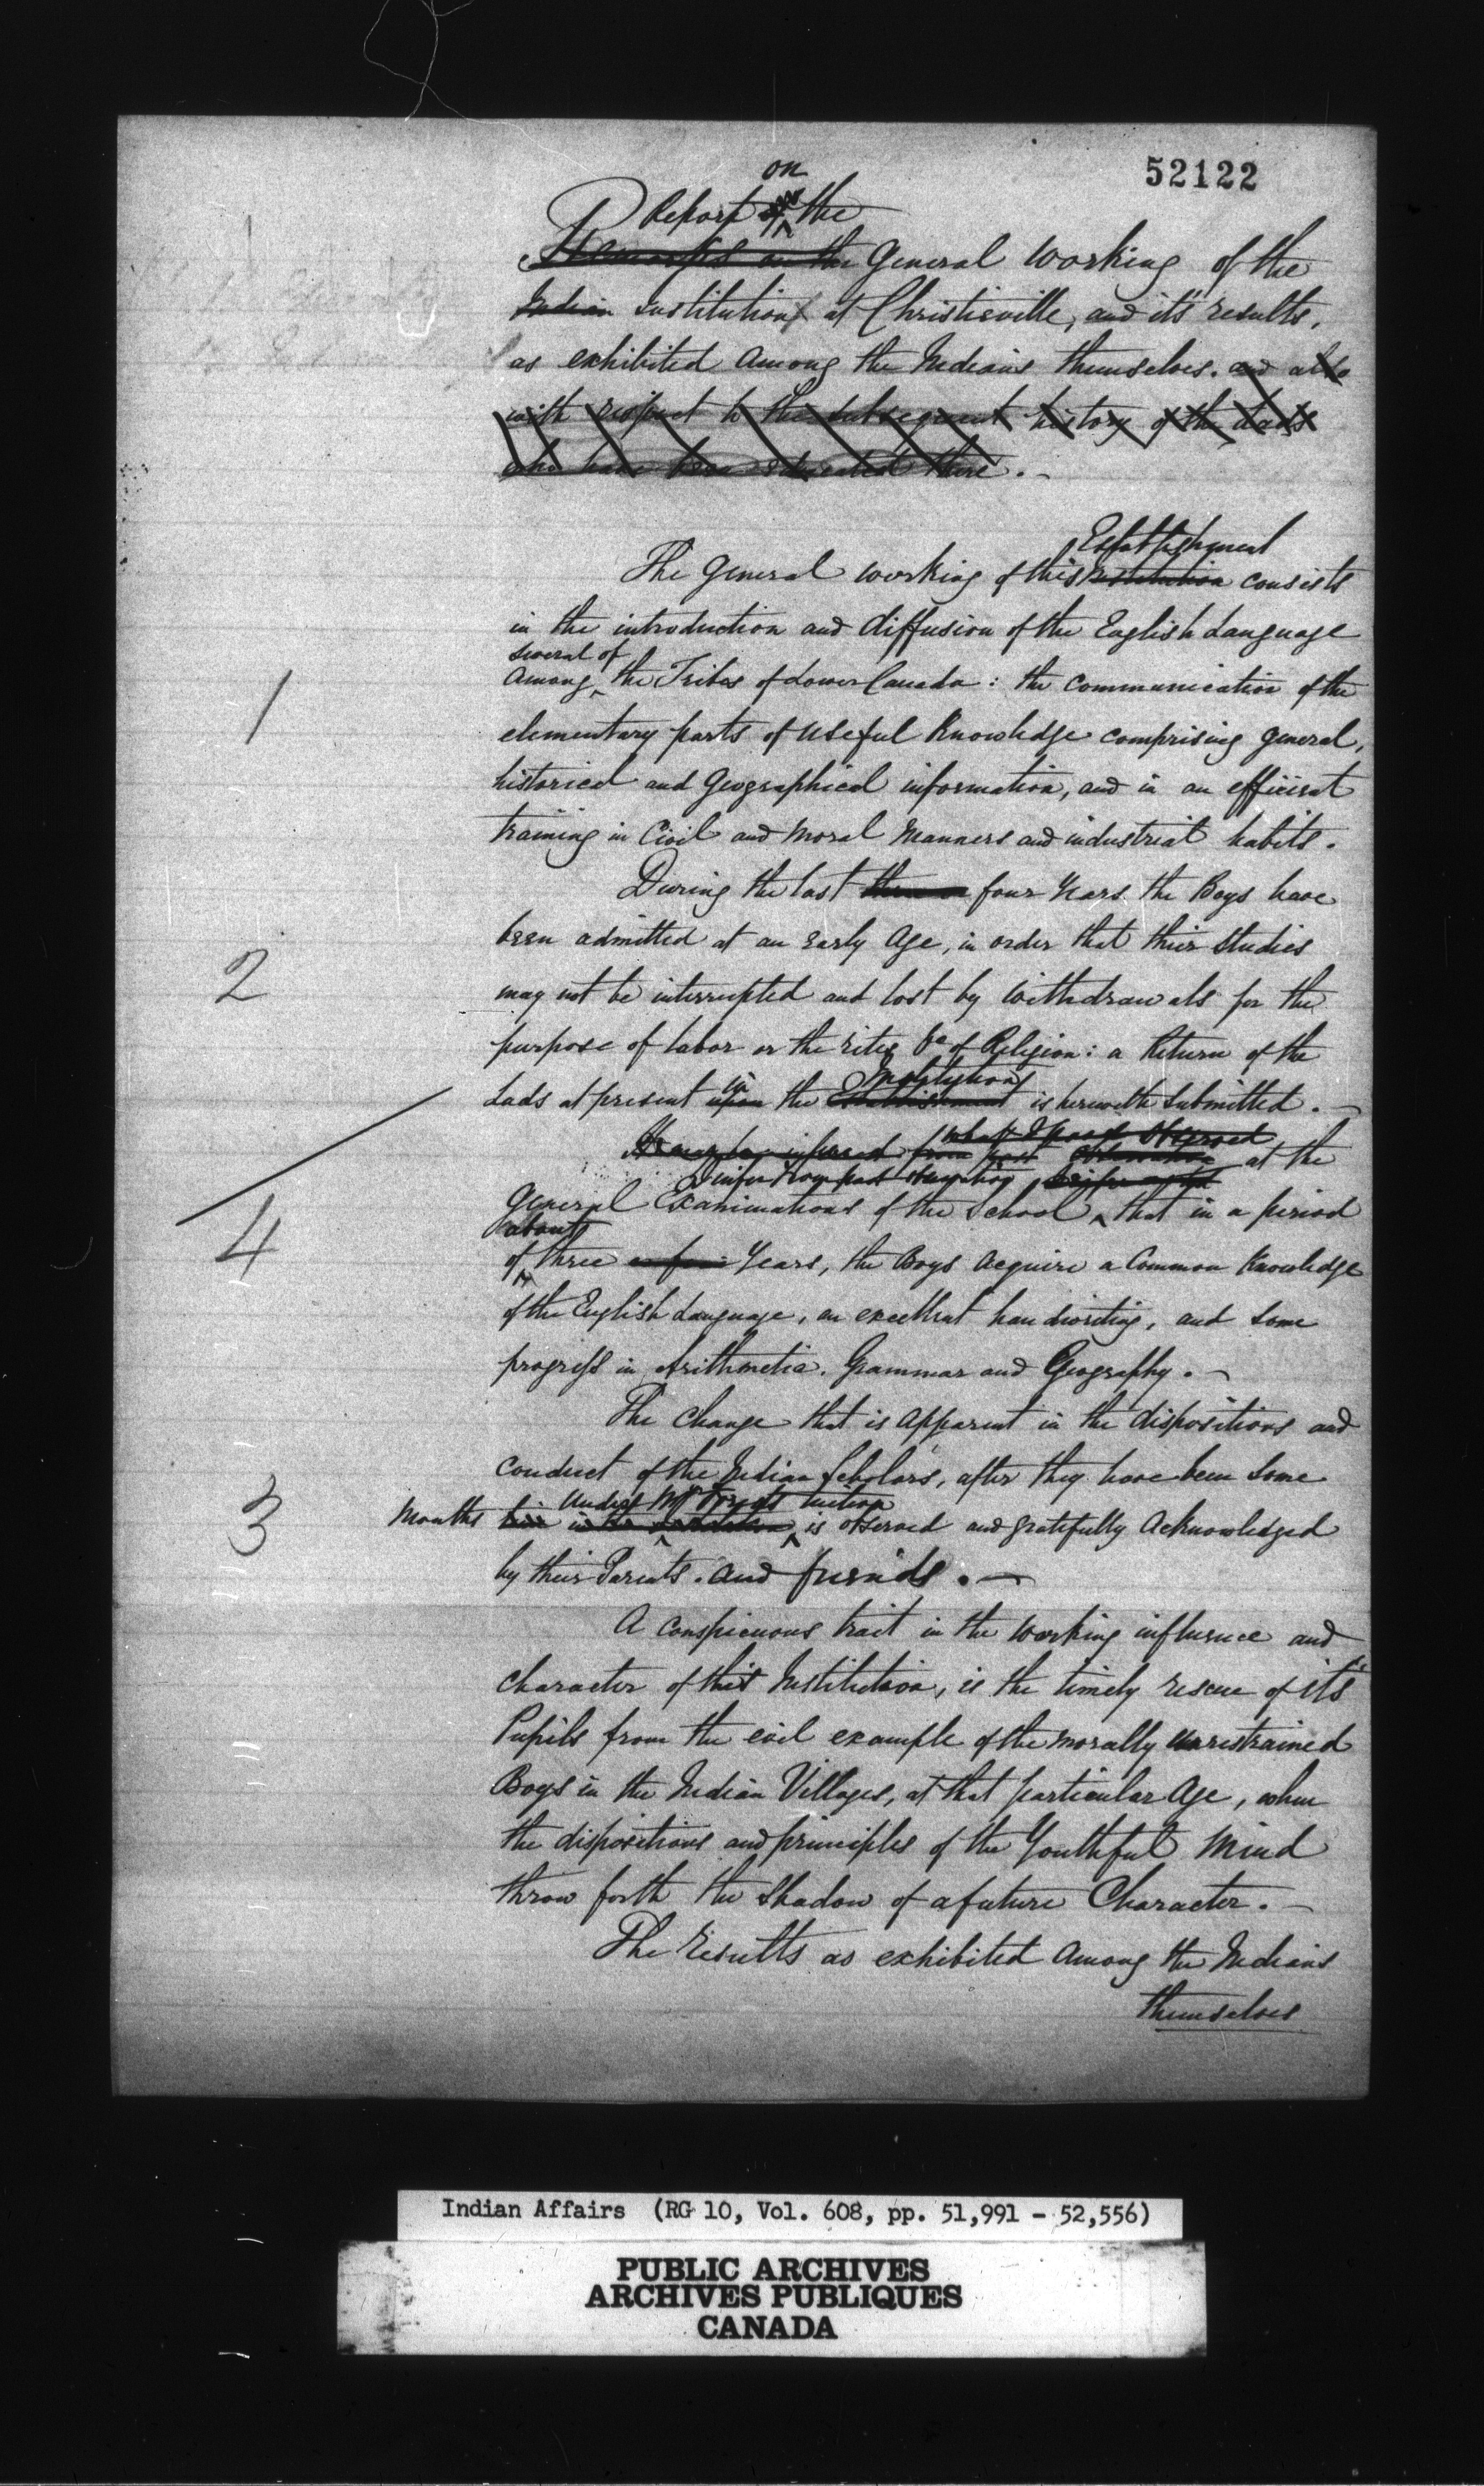 52122
on
Report of the
Remarks on the General Working of the
Indian Institution at Christieville, and it's results,
as exhibited among the Indians themselves. and also
with respect to the subsequent history of the Lads
who have been educated there.
Establishment
The General working of this Institution consists
in the introduction and diffusion of the English Language
several of
1
among the Tribes of Lower Canada: the communication of the
elementary parts of useful Knowledge comprising general,
historical and Geographical information, and in an efficient
training in Civil and moral manners and industrial habits.
During the last three or four Years the Boys have
been admitted at an early Age, in order that their studies
2
may not be interrupted and lost by withdrawals for the
purpose of labor or the rites &c of Religion: a Return of the
in Institution
Lads at present upon the Establishment is herewith submitted.
what I have observed
It may be inferred from past observation at the
I infer from past observation
4
General Examinations of the School, that in a period
about
of three or four Years, the Boys acquire a Common Knowledge
of the English Language, an excellent handwriting, and some
progress in Arithmetic. Grammar and Geography.
The change that is apparent in the dispositions and
conduct of the Indian Scholars, after they have been some
Under Mr tuition
3
Months in the Institution is observed and gratefully acknowledged
by their Parents. and friends.
A conspicuous trait in the working influence and
character of this Institution, is the timely rescue of it's
Pupils from the evil example of the morally unrestrained
Boys in the Indian Villages, at that particular Age, when
the dispositions and principles of the Youthful Mind
throw forth the Shadow of a future Character.
The Results as exhibited among the Indians
themselves
Indian Affairs (RG 10, Vol. 608, pp. 51,991 - 52,556)
PUBLIC ARCHIVES
ARCHIVES PUBLIQUES
CANADA